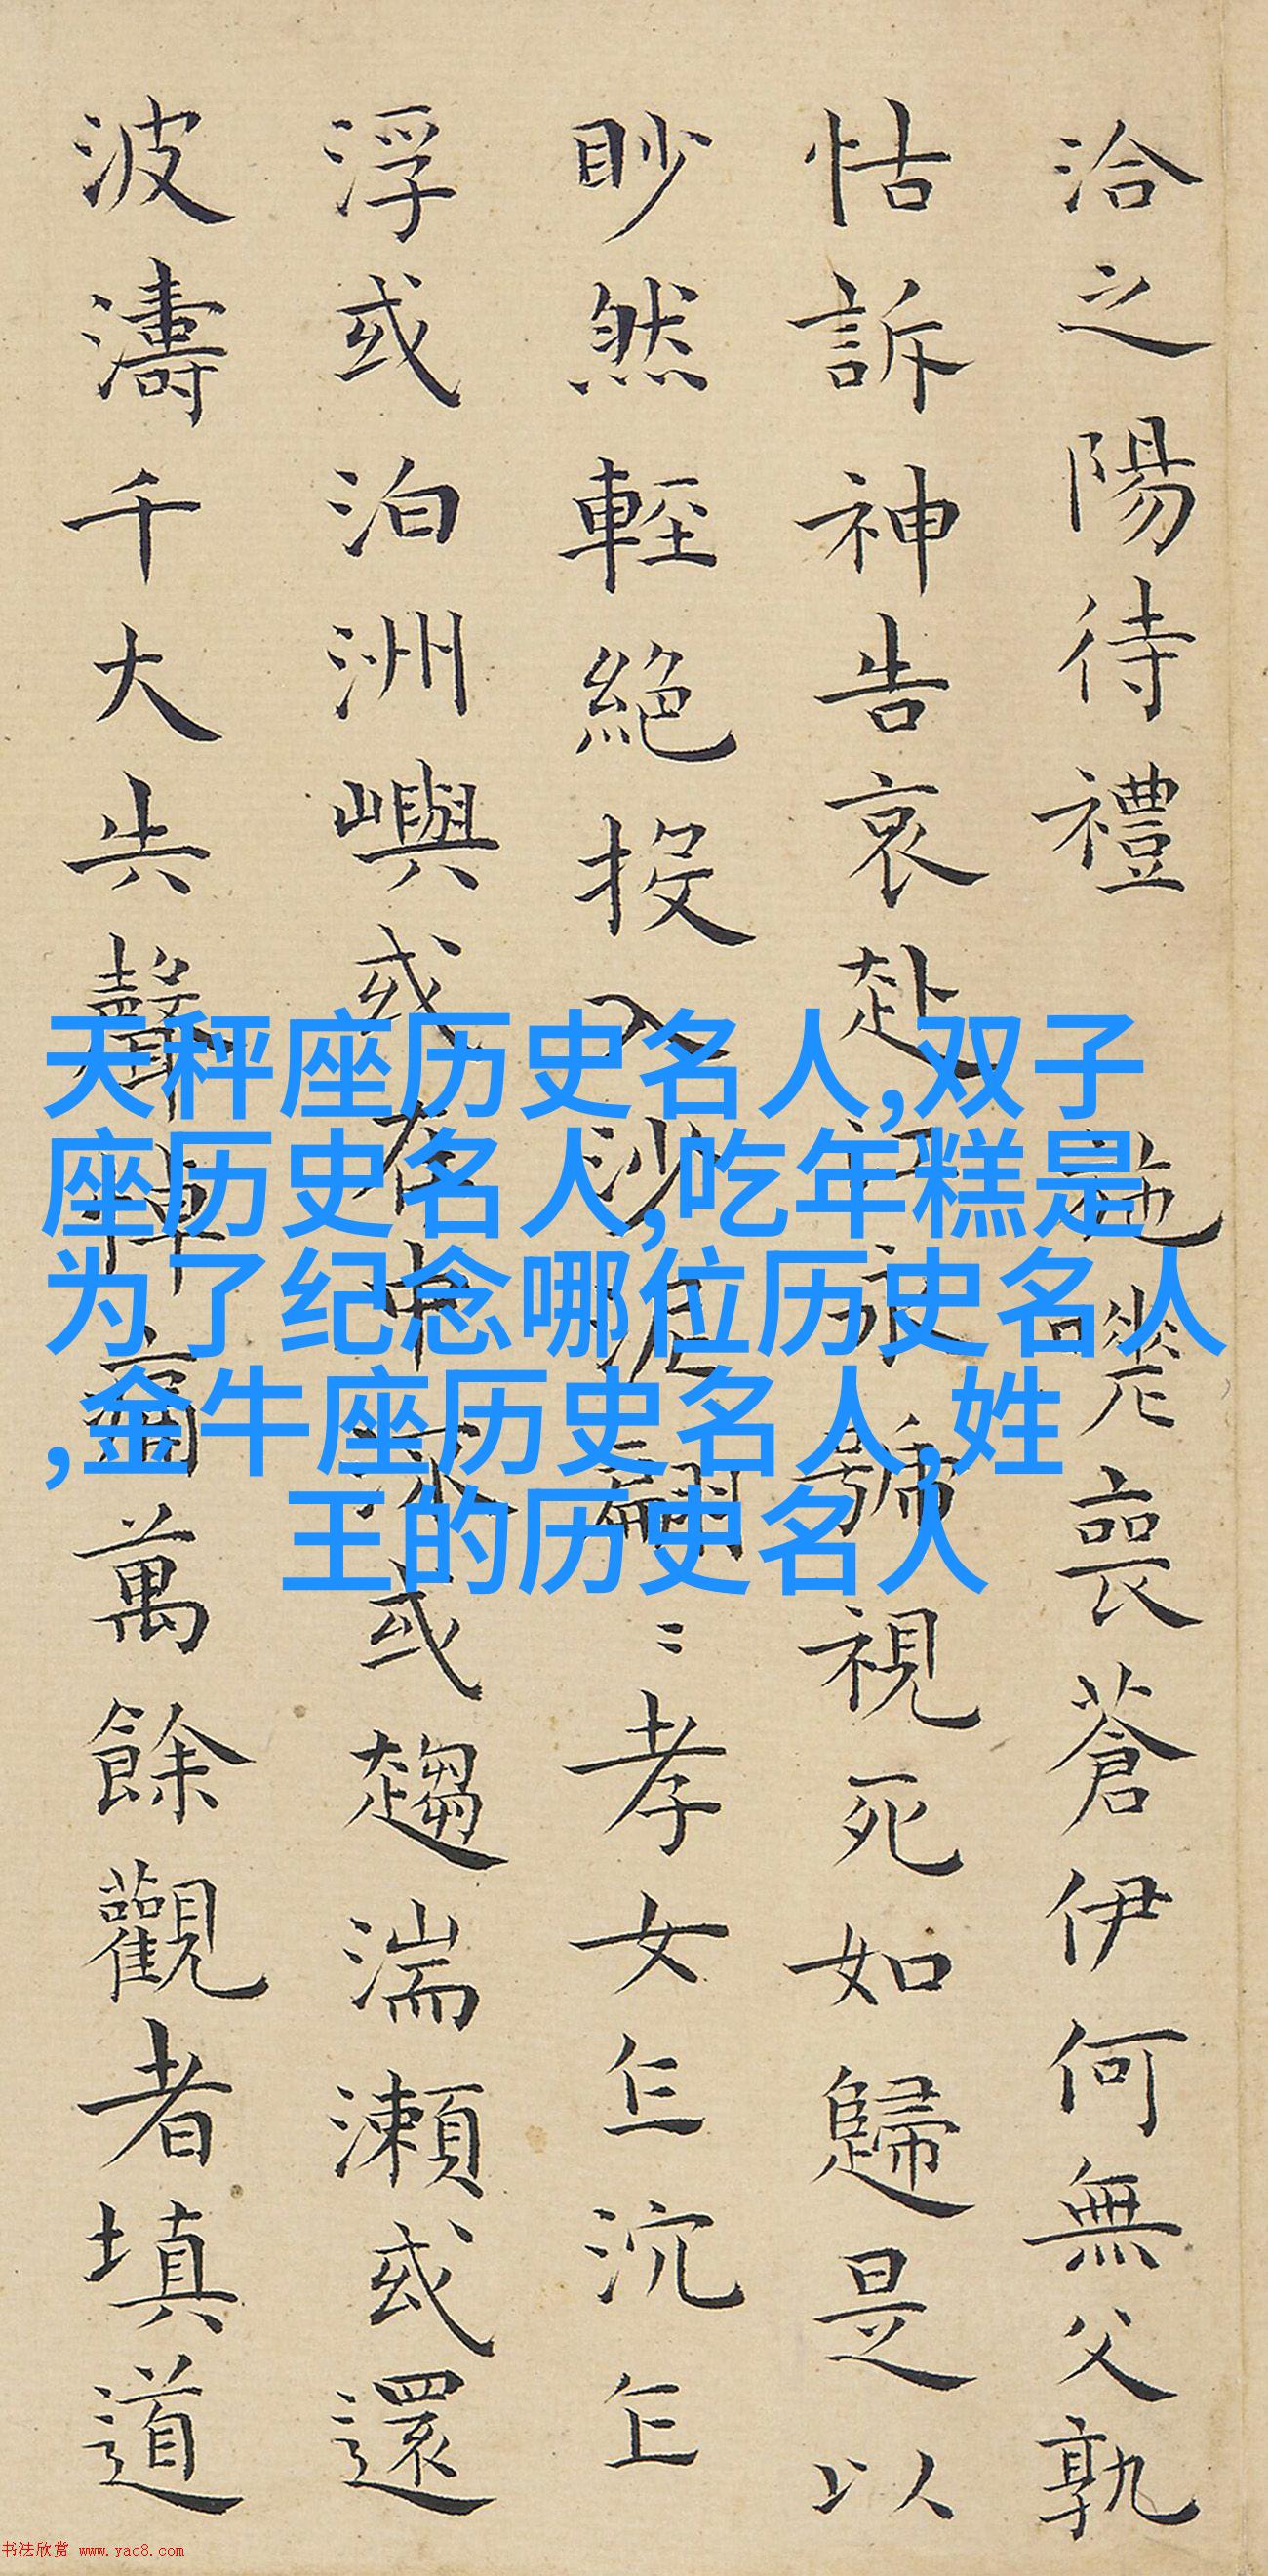 洽之陽待禮 施嗟喪蒼伊何無父孰
怙訴神告哀赴江永號視死如歸是以
眇然輕絕投入沙泥翩〻孝女乍沉乍
浮或泊洲嶼或在中流或趨湍瀨或還
波濤千大失聲悼痛萬餘觀者填道
天秤座历史名人,双子
座历史名人,吃年糕是
为了纪念哪位历史名人
,金牛座历史名人,姓
王的历史名人
书法欣赏 www.yac8.com